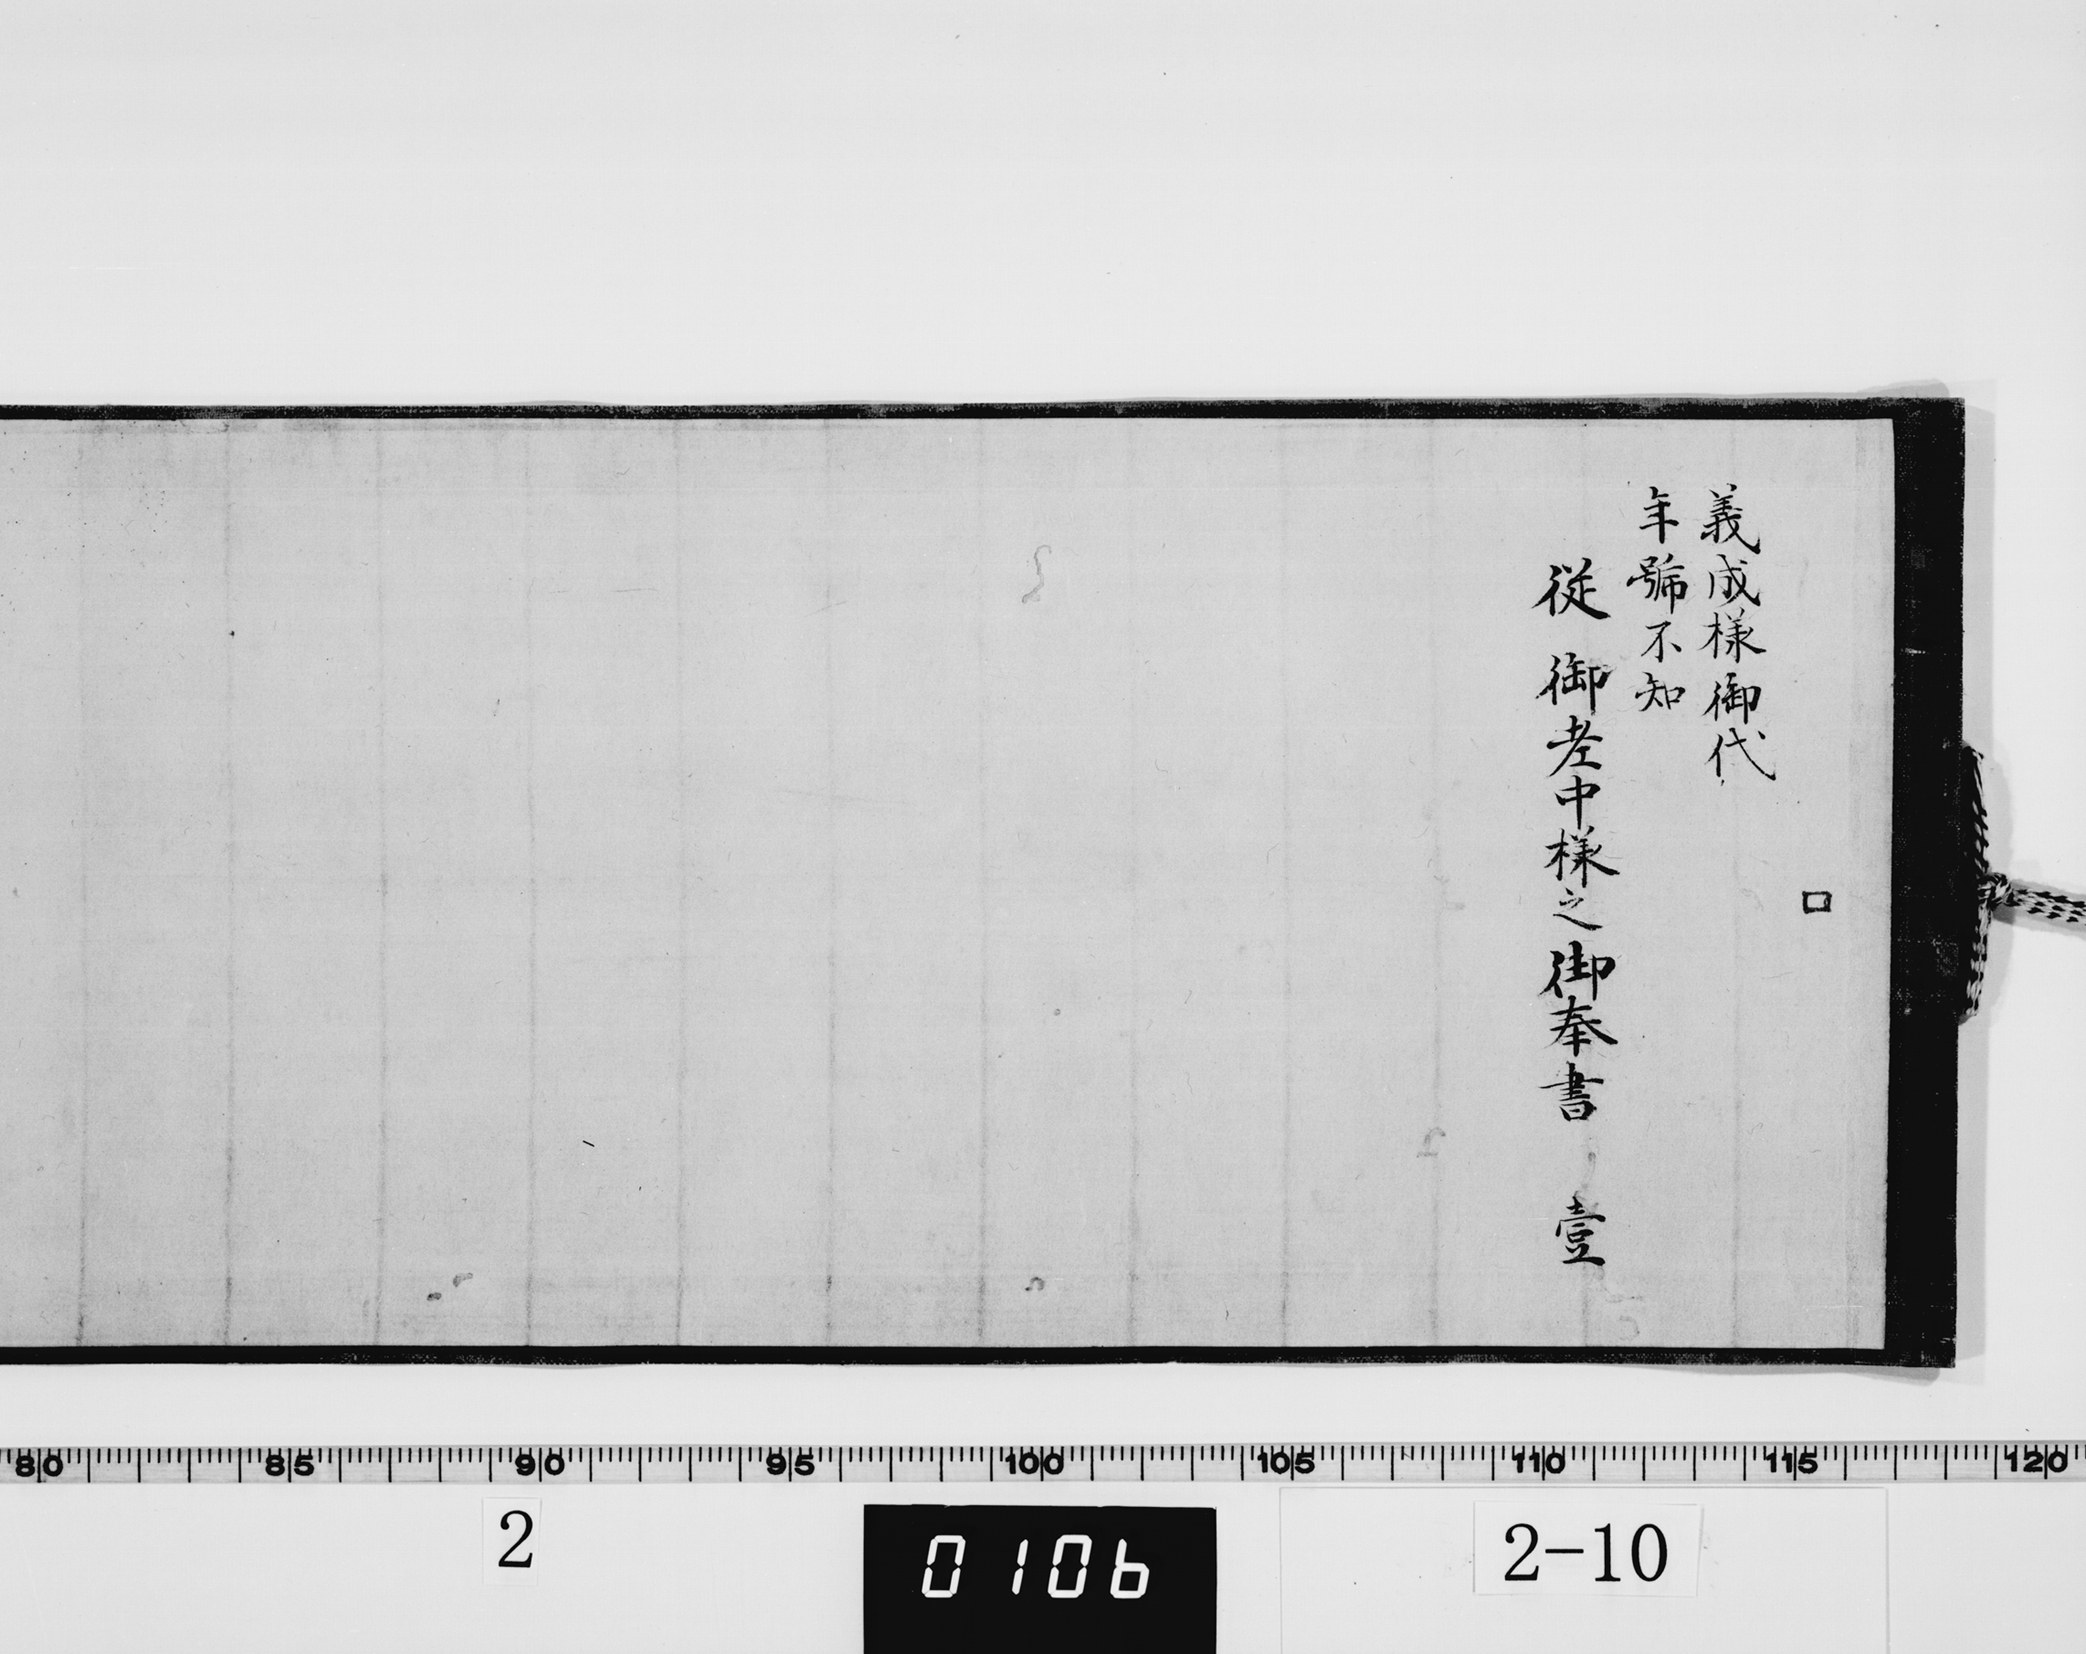 義成様御代
年號不知
従 御老中様之御奉書 壹
80 85 90 95 100 105 110 115 120
2
0106
2-10